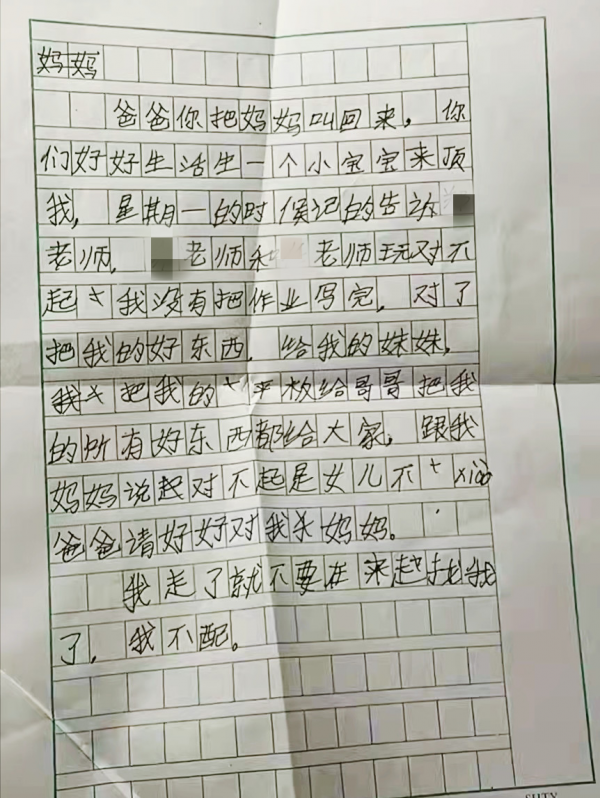 妈妈
爸爸你把妈妈叫回来，你
们好好生活生一个小宝宝来顶
我，星期一的时候记的告诉
老师，老师和老师玩对不
起我没有把作业写完，对了
把我的好东西，给我的妹妹，
我把我的平板给哥哥把我
的所有好东西都给大家，跟我
妈妈说起对不起是女儿不xiào
爸爸请好好对我妈妈。
我走了就不要在来找我
了，我不配。
SHTX